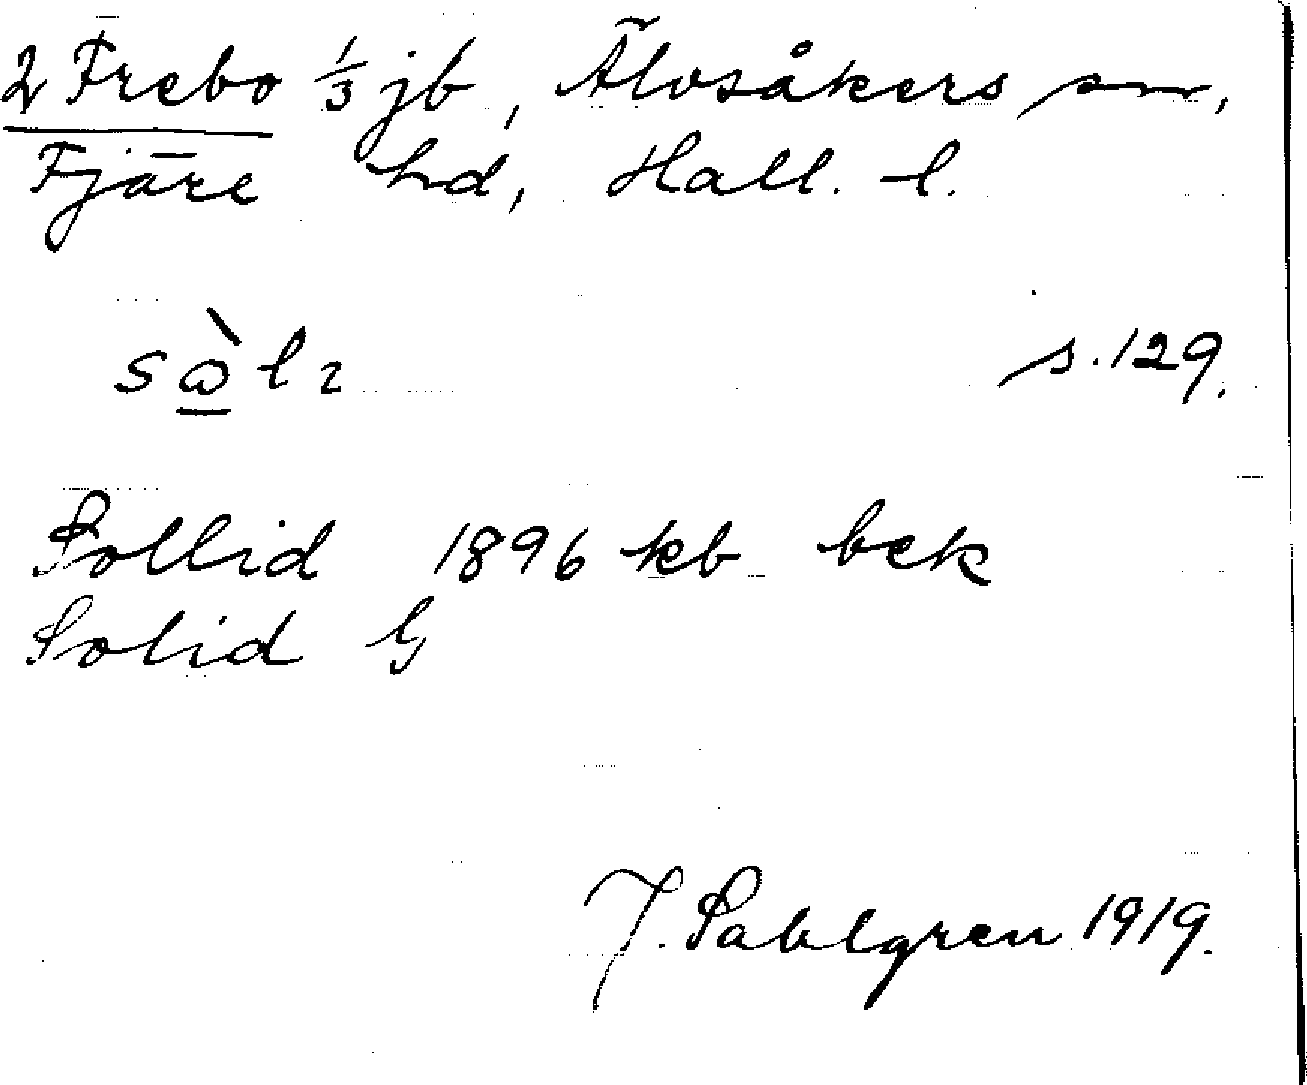 2 Frebo 1/3 jb, Älvsåkers sn,
Fjäre hd, Hall. l.
s.129.
Sollid 1896 kb bek
Solid G
J. Sahlgren 1919.